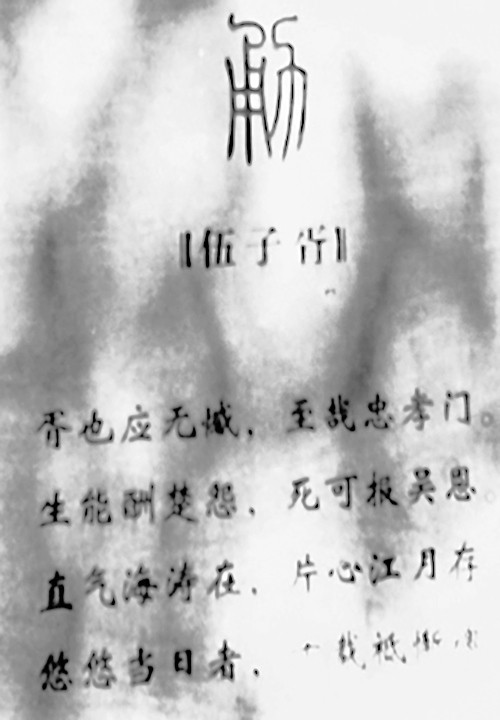 勇
【伍子胥】
胥也应无憾，至哉忠孝门。
生能酬楚怨，死可报吴恩
直气海涛在，片心江月存
悠悠当日者，载祗惭